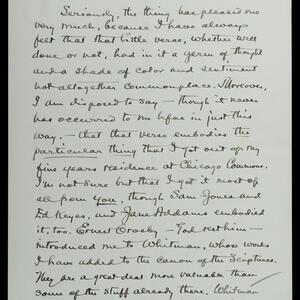 Seriously, the thing has pleased me
very much, because I have always
felt that that little verse, whether well
done or not, had in it a germ of thought
and a shade of color and sentiment
not altogether commonplace. Moreover,
I am disposed to say – though it never
has occurred to me before in just this
way, – that that verse embodies the
particular thing that I got out of my
five years residence at Chicago Commons.
I'm not sure but that I got it most of
all from you, though Sam Jones and
Ed Keyes, and Jane Addams embodied
it, too. Ernest Crosby – God rest him –
introduced me to Whitman, whose works
I have added to the canon of the Scriptures.
They are a great deal more valuable than
some of the stuff already there. Whitman